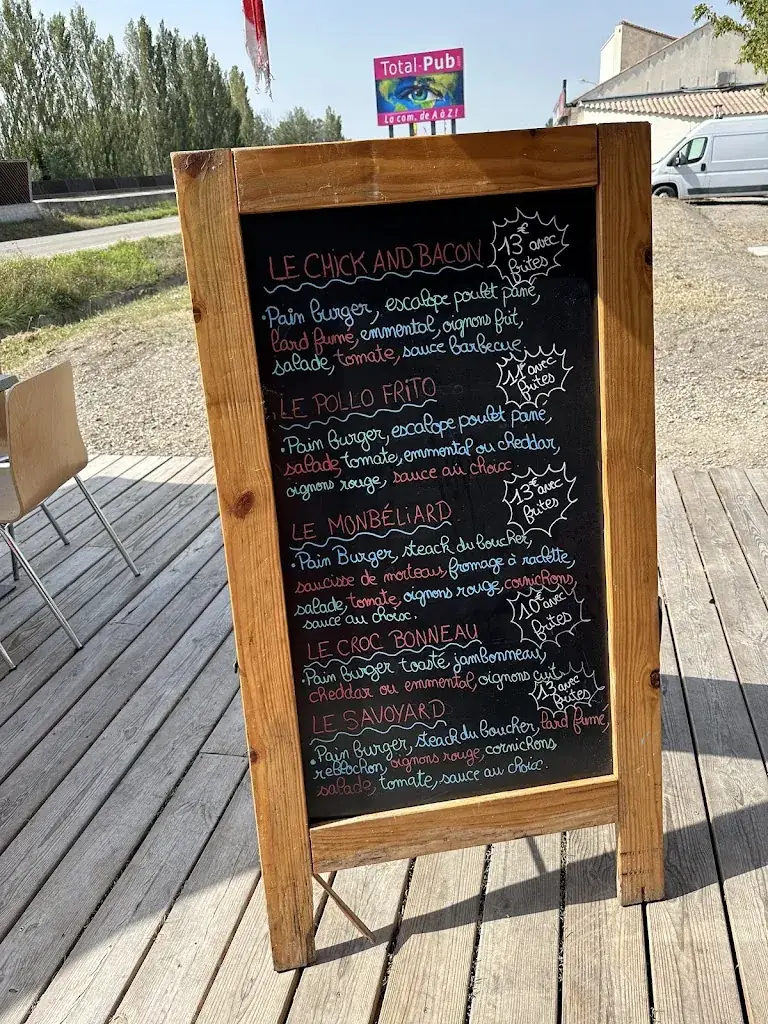 Total-Pub.com
La com. de A à Z !
LE CHICK AND BACON
13€ avec
frites
• Pain burger, escalope poulet pané,
lard fumé, emmental, oignons frit,
salade, tomate, sauce barbecue
LE POLLO FRITO
avec
frites
• Pain burger, escalope poulet pané,
salade, tomate, emmental ou cheddar,
oignons rouge, sauce au choix
LE MONBÉLIARD
13€ avec
frites
• Pain Burger, steack du boucher,
saucisse de morteau, fromage à raclette,
salade, tomate, oignons rouge, cornichons,
sauce au choix.
LE CROC BONNEAU
10€ avec
frites
• Pain burger toasté, jambonneau,
cheddar ou emmental, oignons cuit
LE SAVOYARD
13€ avec
frites
• Pain burger, steack du boucher, lard fumé,
reblochon, oignons rouge, cornichons
salade, tomate, sauce au choix.